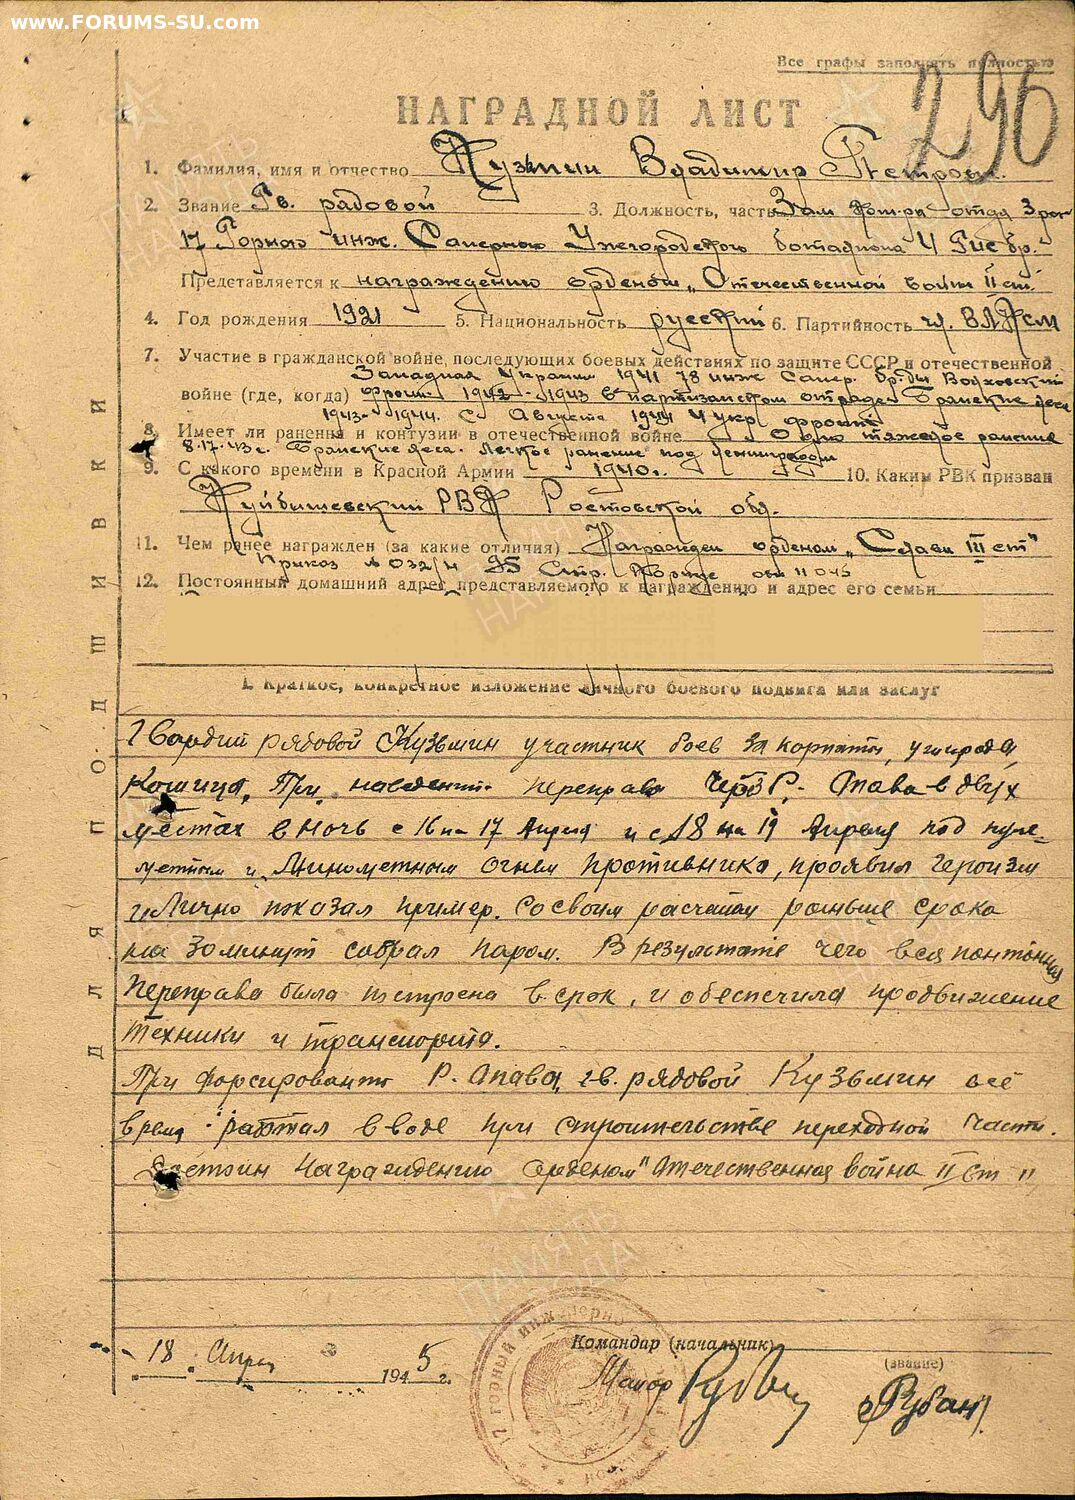 www.FORUMS-SU.com
Все графы заполнять полностью
296
НАГРАДНОЙ ЛИСТ
1. Фамилия, имя и отчество Кузьмин Владимир Петрович.
2. Звание Гв. рядовой 3. Должность, часть Зам ком-ра отд. 3 роты
17 Горно инж. Саперного Ужгородского батальона 4 Гисбр.
Представляется к награждению орденом „Отечественной войны II ст.
4. Год рождения 1921 5. Национальность русский 6. Партийность чл. ВЛКСМ
7. Участие в гражданской войне, последующих боевых действиях по защите СССР и отечественной
Западная Украина 1941 78 инж Сапер. бр-ды Волховский
войне (где, когда) фронт 1942-1943 в партизанском отряде Брянские леса
1943-1944. С Августа 1944 4 укр. фронт
8. Имеет ли ранения и контузии в отечественной войне Одно тяжелое ранение
8.17.43 г. Брянские леса. Легкое ранение под Ленинградом
9. С какого времени в Красной Армии 1940г. 10. Каким РВК призван
Куйбышевский РВК Ростовской обл.
11. Чем ранее награжден (за какие отличия) Награжден орденом „Слава III ст"
Приказ № 032/н 95 Стр. Корпус
12. Постоянный домашний адрес представляемого к награждению и адрес его семьи
I. Краткое, конкретное изложение личного боевого подвига или заслуг
Гвардий рядовой Кузьмин участник боев за Корпаты, ужгорода,
Кошица. При наведении переправы через Р. Опава в двух
местах в ночь с 16 на 17 Апреля и с 18 на 19 Апреля под пуле-
метным и Минометным огнем противника, проявил героизм
и Лично показал пример. Со своим расчетам раньше срока
на 30 минут собрал паром. В результате чего вся понтонная
Переправа была построена в срок, и обеспечила продвижение
Техники и транспорта.
При форсировании Р. Опава, гв. рядовой Кузьмин всё
время работал в воде при строительстве переходной части.
Достоин Награждению Орденом "Отечественная война II ст"
18 Апрел 1945 г.
Командир (начальник)
(звание)
Майор
Рубан
17 горный инженерно
ДЛЯ ПОДШИВКИ
ПАМЯТЬ НАРОДА